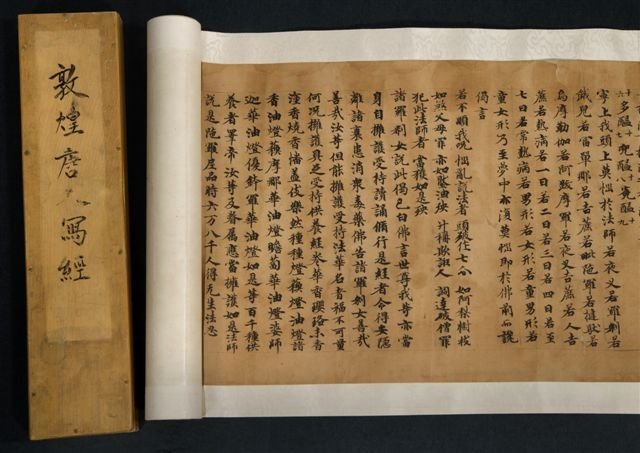 敦煌唐人寫經
多醯兜醯㝹醯
寧上我頭上莫惱於法師若夜叉若羅剎若
餓鬼若富單那若吉蔗若毗陀羅若揵馱若
烏摩勒伽若阿跋摩羅若夜叉吉蔗若人吉
蔗若熱病若一日若二日若三日若四日若至
七日若常熱病若男形若女形若童男形若
童女形乃至夢中亦復莫惱即於佛前而說
偈言
若不順我呪 惱亂說法者 頭破作七分 如阿梨樹枝
如煞父母罪 亦如壓油殃 斗秤欺誑人 調達破僧罪
犯此法師者 當獲如是殃
諸羅剎女說此偈已白佛言世尊我等亦當
身自擁護受持讀誦脩行是經者令得安隱
離諸衰患消衆毒藥佛告諸羅剎女善哉
善哉汝等但能擁護受持法華名者福不可量
何況擁護具足受持供養經卷華香瓔珞末香
塗香燒香幡蓋伎樂然種種燈蘇燈油燈諸
香油燈蘇摩那華油燈瞻蔔華油燈婆師
迦華油燈優鉢羅華油燈如是等百千種供
養者睪帝汝等及眷屬應當擁護如是法師
說是陀羅尼品時六万八千人得无生法忍